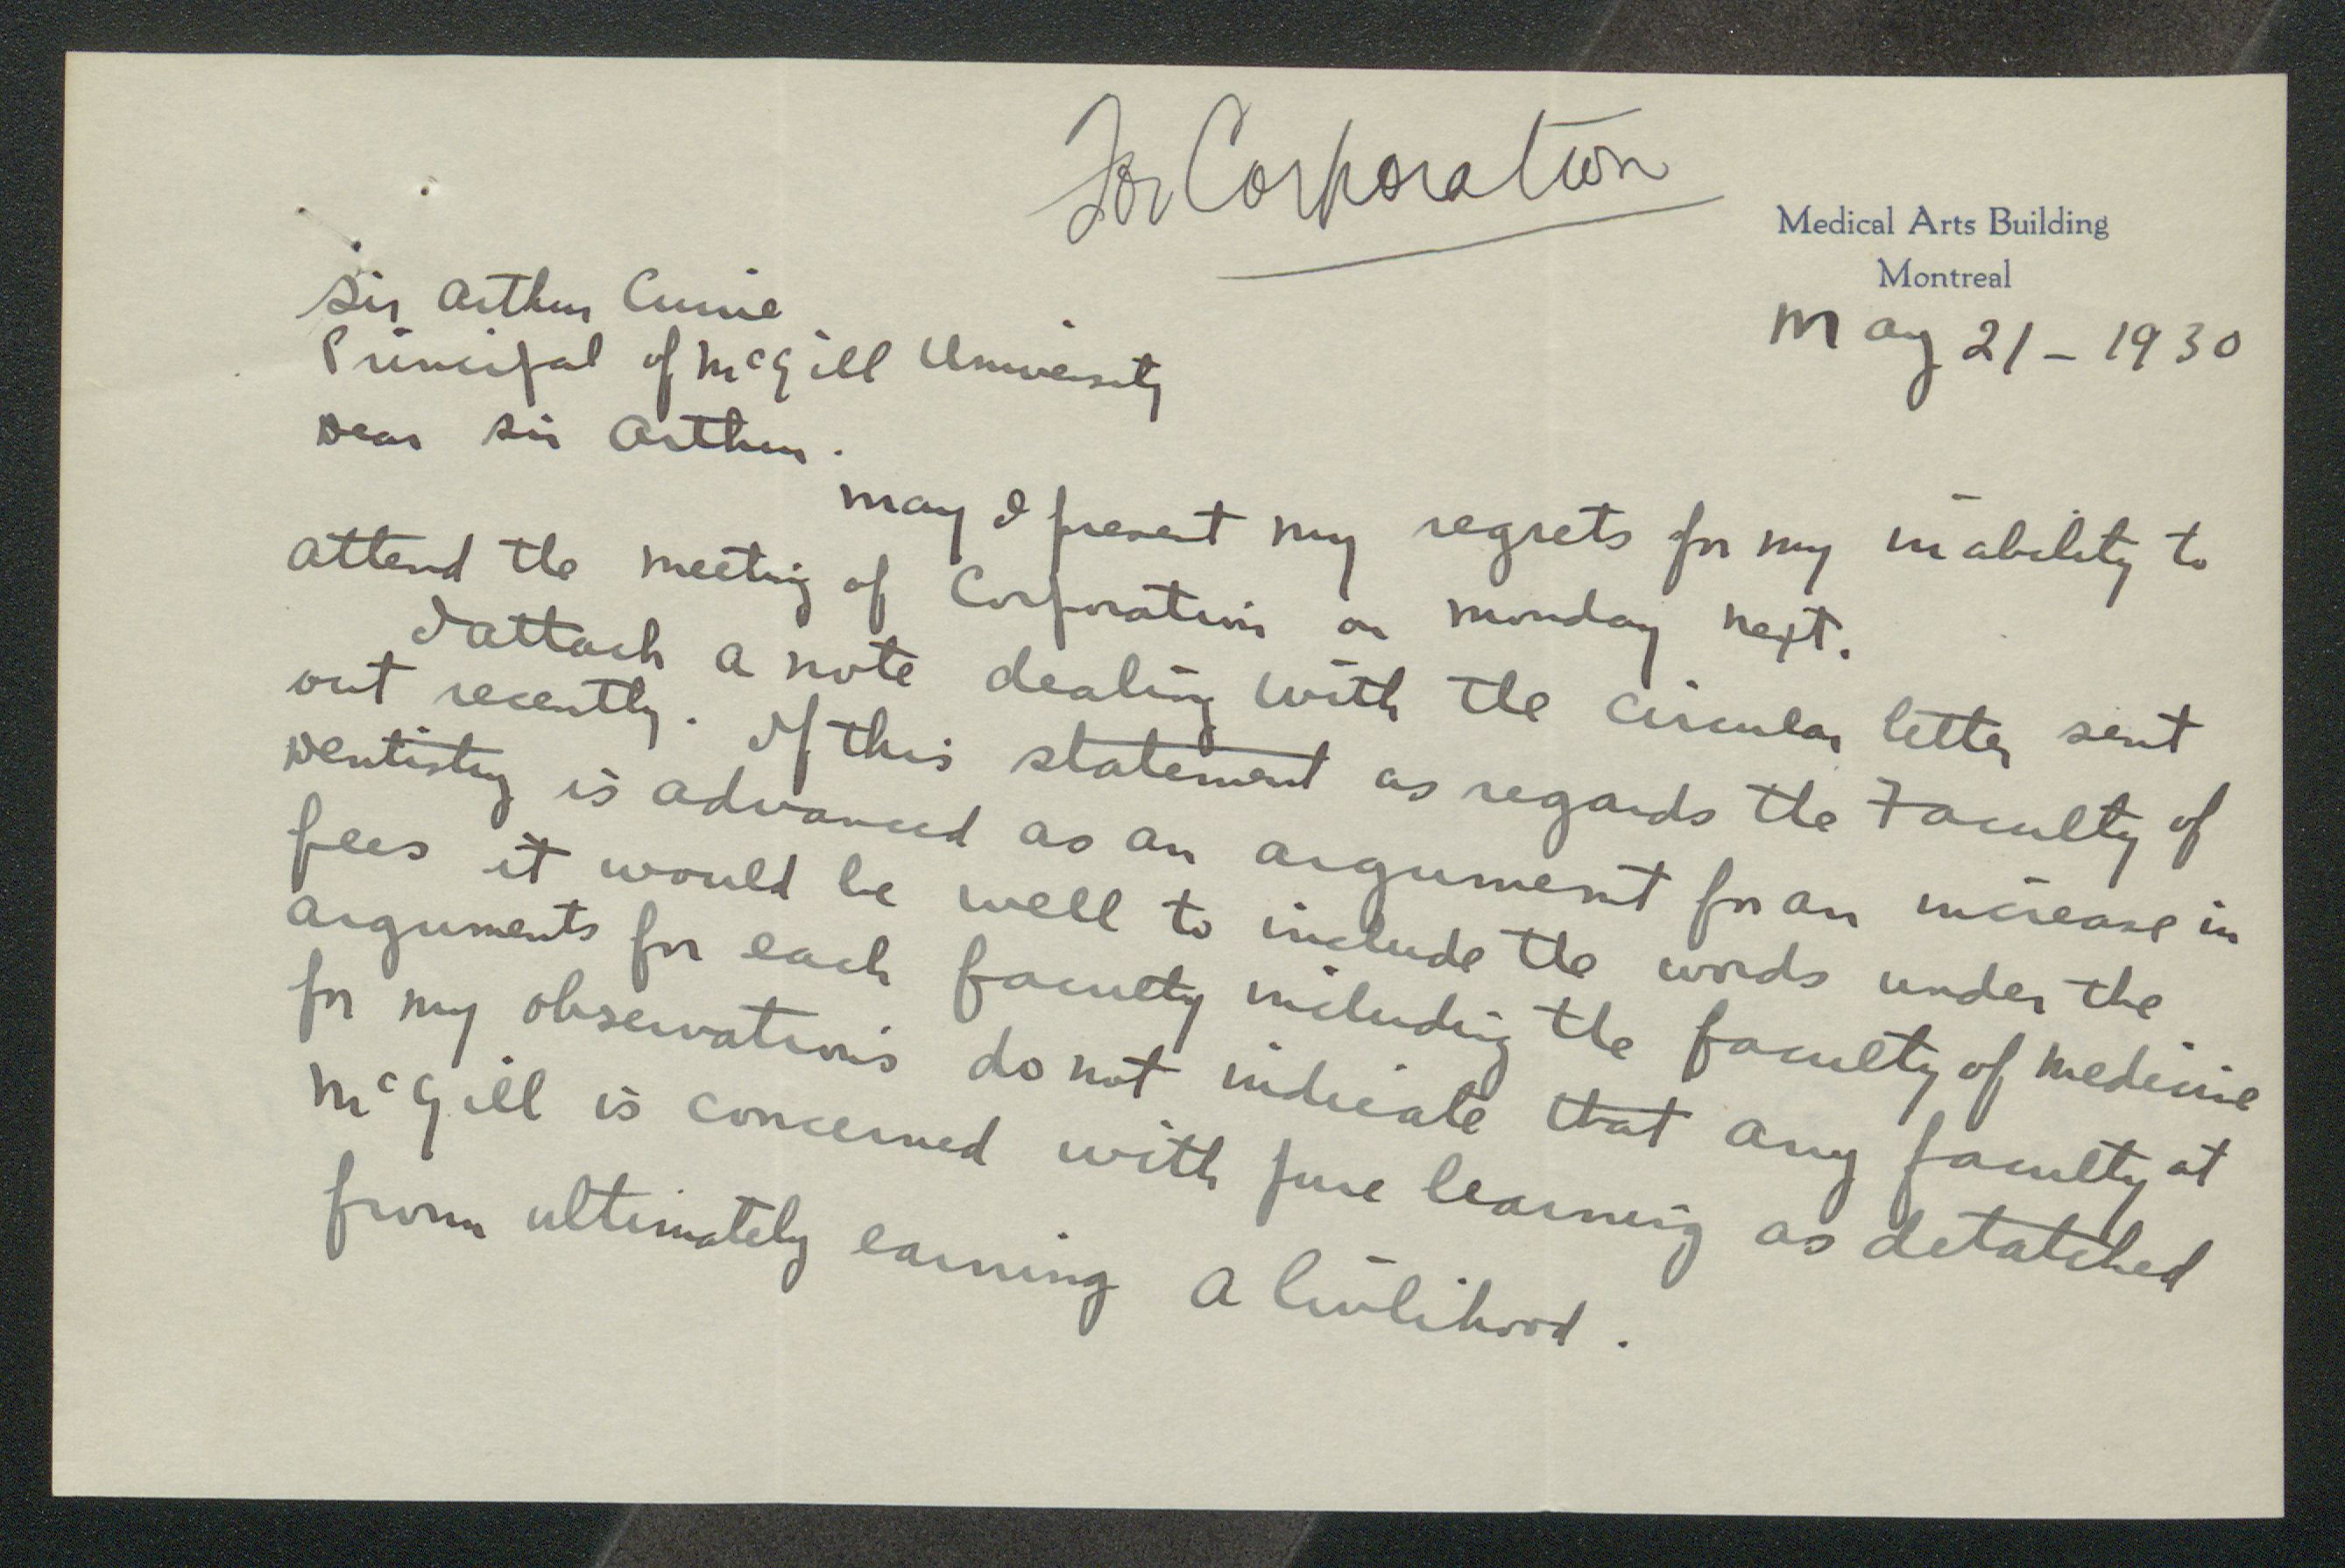 For Corporation
Medical Arts Building
Montreal
May 21 - 1930
Sir Arthur Currie
Principal of McGill University
Dear Sir Arthur.
May I present my regrets for my inability to
attend the meeting of Corporation on Monday next.
I attach a note dealing with the circular letter sent
out recently. If this statement as regards the Faculty of
Dentistry is advanced as an argument for an increase in
fees it would be well to include the words under the
arguments for each faculty including the faculty of medicine
for my observations do not indicate that any faculty at
McGill is concerned with pure learning as detatched
from ultimately earning a livlihood.